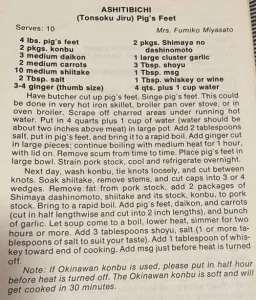 ASHITIBICHI
(Tonsoku Jiru) Pig's Feet
Serves: 10
Mrs. Fumiko Miyasato
4 lbs. pig's feet
2 pkgs. konbu
3 medium daikon
2 medium carrots
10 medium shiitake
2 Tbsp. salt
3-4 ginger (thumb size)
2 pkgs. Shimaya no
dashinomoto
1 large cluster garlic
3 Tbsp. shoyu
1 Tbsp. msg
1 Tbsp. whiskey or wine
4 qts. plus 1 cup water
Have butcher cut up pig's feet. Singe pig's feet. This could
be done in very hot iron skillet, broiler pan over stove, or in
oven broiler. Scrape off charred areas under running hot
water. Put in 4 quarts plus 1 cup of water (water should be
about two inches above meat) in large pot. Add 2 tablespoons
salt, put in pig's feet, and bring it to a rapid boil. Add ginger cut
in large pieces; continue boiling with medium heat for 1 hour,
with lid on. Remove scum from time to time. Place pig's feet in
large bowl. Strain pork stock, cool and refrigerate overnight.
Next day, wash konbu, tie knots loosely, and cut between
knots. Soak shiitake, remove stems, and cut caps into 3 or 4
wedges. Remove fat from pork stock, add 2 packages of
Shimaya dashinomoto, shiitake and its stock, konbu, to pork
stock. Bring to a rapid boil. Add pig's feet, daikon, and carrots
(cut in half lengthwise and cut into 2 inch lengths), and bunch
of garlic. Let soup come to a boil, lower heat, simmer for two
hours or more. Add 3 tablespoons shoyu, salt (1 or more ta-
blespoons of salt to suit your taste). Add 1 tablespoon of whis-
key toward end of cooking. Add msg just before heat is turned
off.
Note: If Okinawan konbu is used, please put in half hour
before heat is turned off. The Okinawan konbu is soft and will
get cooked in 30 minutes.